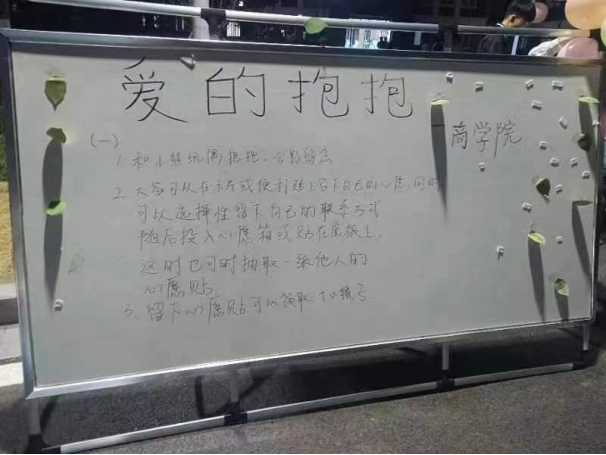 爱的抱抱
商学院
(一)
1. 和小熊玩偶抱抱,合影留念
2. 大家可以在卡片或便利贴上写下自己的心愿,同时
可以选择性留下自己的联系方式
随后投入心愿箱或贴在展板上,
这时也可时抽取一张他人的
心愿贴
3. 留下心愿贴可以领取一个小